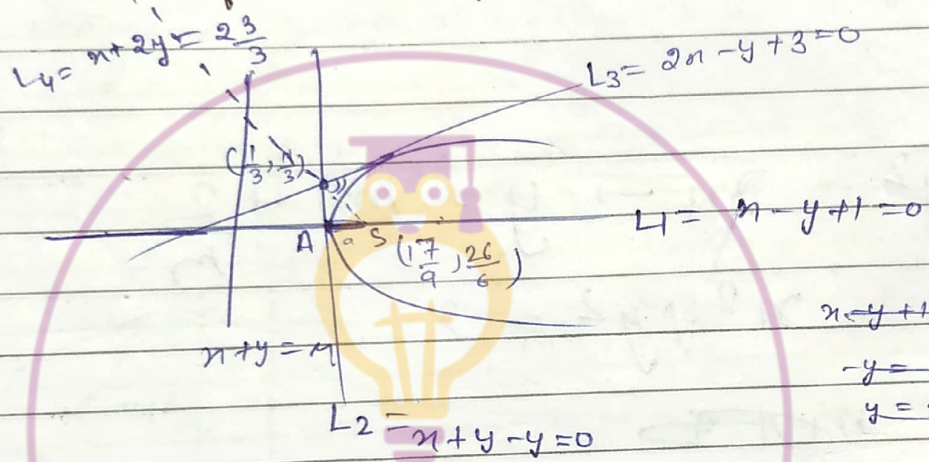 L4 = x + 2y = 23/3
L3 = 2x - y + 3 = 0
(1/3, 11/3)
L1 = x - y + 1 = 0
A a S (17/9, 26/6)
x - y + 1
x + y = 
-y =
y =
L2 = x + y - y = 0